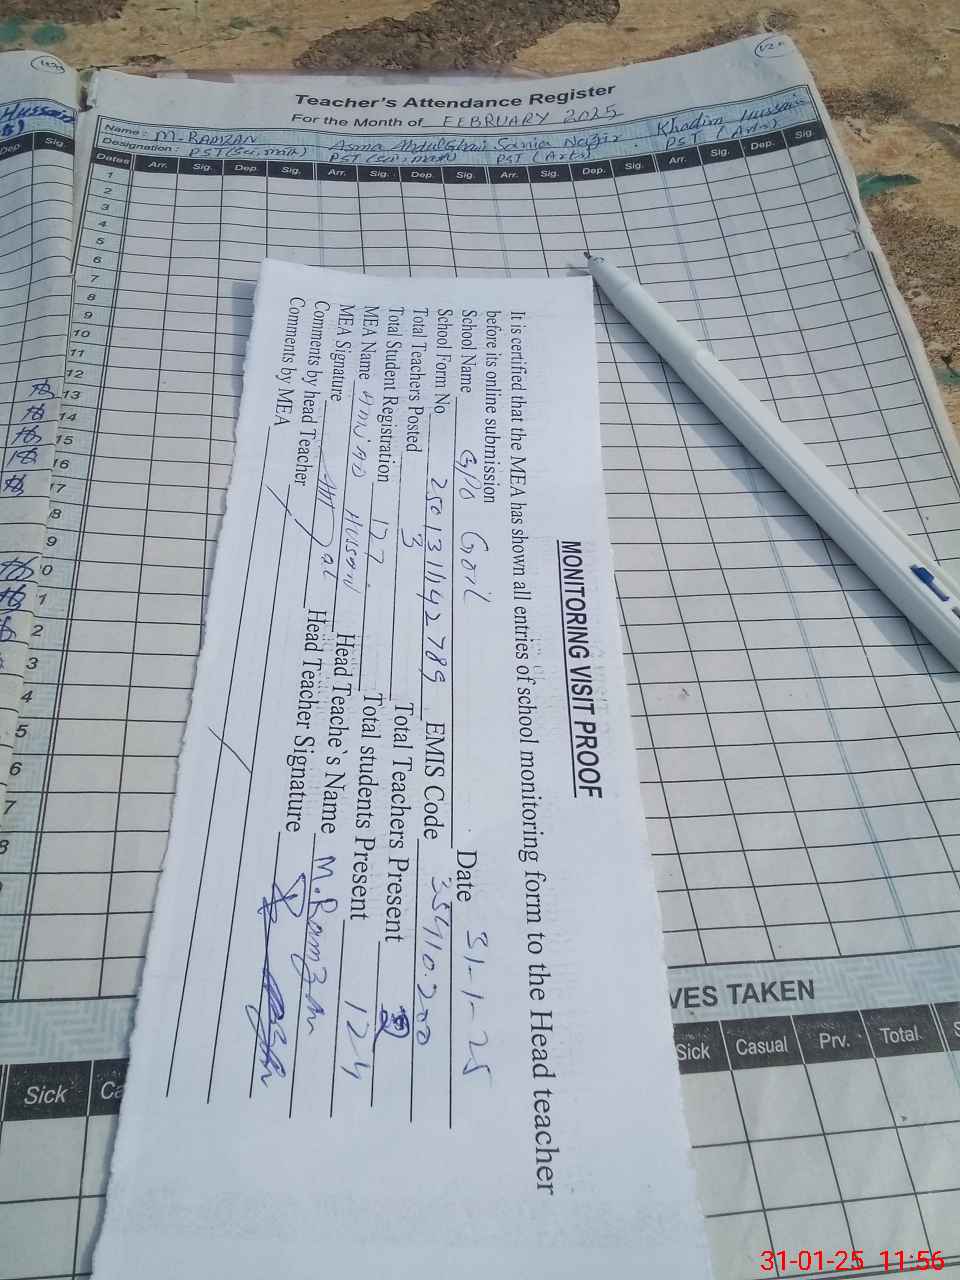 Teacher's Attendance Register
For the Month of FEBRUARY 2025
Name: M. RAMZAN Asma Abdulghani Sania Nazir Khadim Hussain
Designation: PST (Sci, math) PST (Sci, math) PST (Arts) PST (Arts)
Dates Arr. Sig. Dep. Sig. Arr. Sig. Dep. Sig. Arr. Sig. Dep. Sig. Arr. Sig. Dep. Sig.
1
2
3
4
5
6
7
8
9
10
11
12
13
14
15
16
17
8
9
0
1
2
3
4
5
6
7
8
Hussain
Dep. Sig.
MONITORING VISIT PROOF
It is certified that the MEA has shown all entries of school monitoring form to the Head teacher
before its online submission
School Name GPS Goil Date 31-1-25
School Form No 250131142789 EMIS Code 33410200
Total Teachers Posted 3 Total Teachers Present 2
Total Student Registration 127 Total students Present 124
MEA Name AMJAD Hussain Head Teache`s Name M.Ramzan
MEA Signature Head Teacher Signature
Comments by head Teacher
Comments by MEA
VES TAKEN
Sick Casual Prv. Total S
Sick Ca
31-01-25 11:56